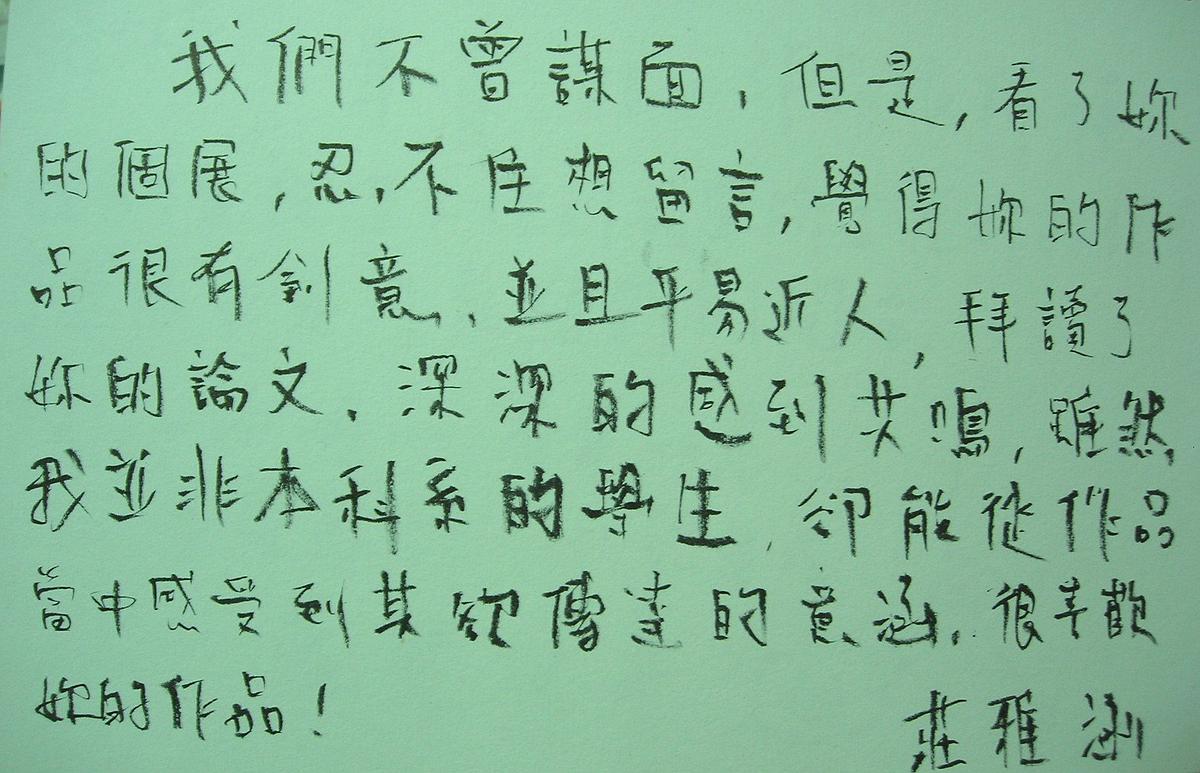 我們不曾謀面，但是，看了妳
的個展，忍不住想留言，覺得妳的作
品很有創意，並且平易近人，拜讀了
妳的論文，深深的感到共鳴，雖然
我並非本科系的學生，卻能從作品
當中感受到其欲傳達的意涵，很喜歡
妳的作品！
莊雅涵